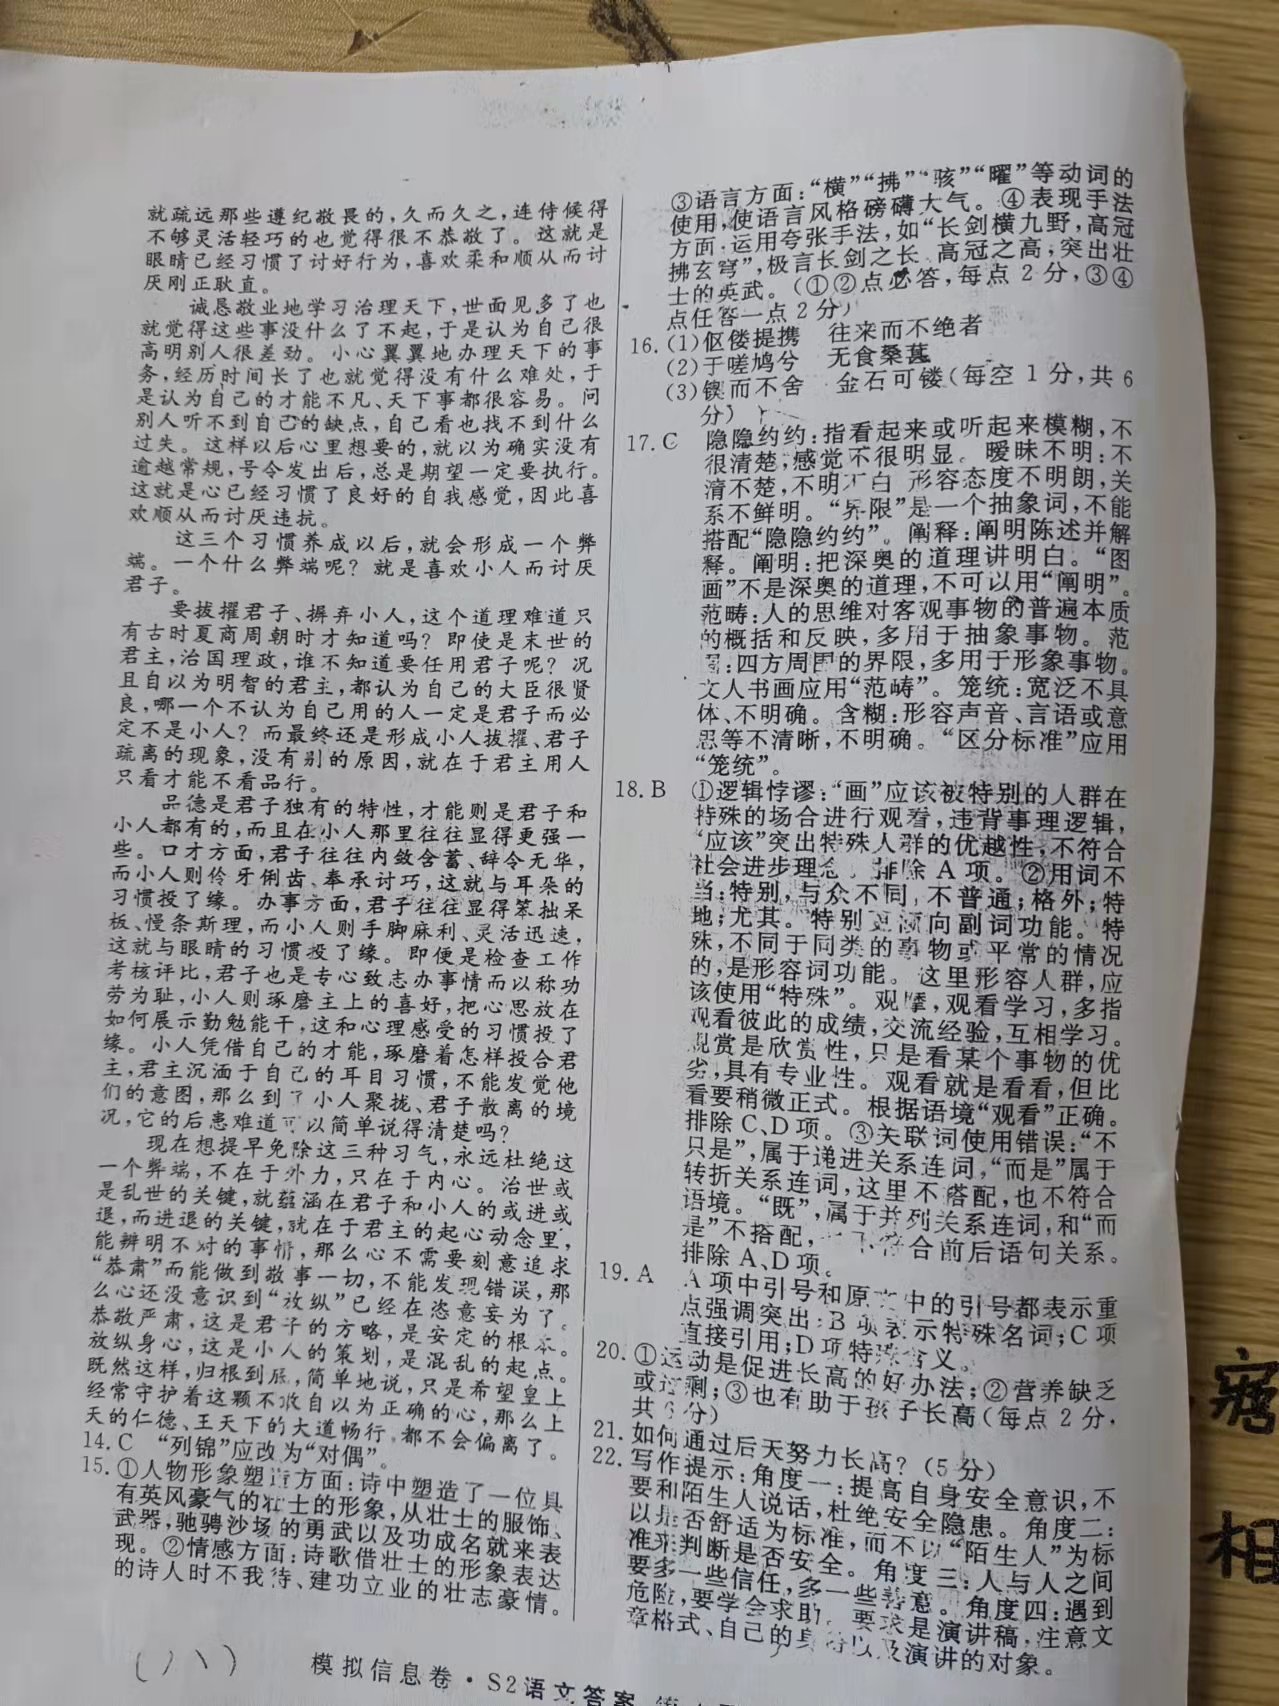 就疏远那些遵纪敬畏的,久而久之,连侍候得
不够灵活轻巧的也觉得很不恭敬了。这就是
眼睛已经习惯了讨好行为,喜欢柔和顺从而讨
厌刚正耿直。
诚恳敬业地学习治理天下,世面见多了也
就觉得这些事没什么了不起,于是认为自己很
高明别人很差劲。小心翼翼地办理天下的事
务,经历时间长了也就觉得没有什么难处,于
是认为自己的才能不凡、天下事都很容易。问
别人听不到自己的缺点,自己看也找不到什么
过失。这样以后心里想要的,就以为确实没有
逾越常规,号令发出后,总是期望一定要执行。
这就是心已经习惯了良好的自我感觉,因此喜
欢顺从而讨厌违抗。
这三个习惯养成以后,就会形成一个弊
端。一个什么弊端呢?就是喜欢小人而讨厌
君子。
要拔擢君子、摒弃小人,这个道理难道只
有古时夏商周朝时才知道吗?即使是末世的
君主,治国理政,谁不知道要任用君子呢?况
且自以为明智的君主,都认为自己的大臣很贤
良,哪一个不认为自己用的人一定是君子而必
定不是小人?而最终还是形成小人拔擢、君子
疏离的现象,没有别的原因,就在于君主用人
只看才能不看品行。
品德是君子独有的特性,才能则是君子和
小人都有的,而且在小人那里往往显得更强一
些。口才方面,君子往往内敛含蓄、辞令无华,
而小人则伶牙俐齿、奉承讨巧,这就与耳朵的
习惯投了缘。办事方面,君子往往显得笨拙呆
板、慢条斯理,而小人则手脚麻利、灵活迅速,
这就与眼睛的习惯投了缘。即便是检查工作
考核评比,君子也是专心致志办事情而以称功
劳为耻,小人则琢磨主上的喜好,把心思放在
如何展示勤勉能干,这和心理感受的习惯投了
缘。小人凭借自己的才能,琢磨着怎样投合君
主,君主沉湎于自己的耳目习惯,不能发觉他
们的意图,那么到了小人聚拢、君子散离的境
况,它的后患难道可以简单说得清楚吗?
现在想提早免除这三种习气,永远杜绝这
一个弊端,不在于外力,只在于内心。治世或
是乱世的关键,就蕴涵在君子和小人的或进或
退,而进退的关键,就在于君主的起心动念里,
能辨明不对的事情,那么心不需要刻意追求
“恭肃”而能做到敬事一切,不能发现错误,那
么心还没意识到“放纵”已经在恣意妄为了。
恭敬严肃,这是君子的方略,是安定的根本。
放纵身心,这是小人的策划,是混乱的起点。
既然这样,归根到底,简单地说,只是希望皇上
经常守护着这颗不敢自以为正确的心,那么上
天的仁德、王天下的大道畅行,都不会偏离了。
14.C “列锦”应改为“对偶”。
15.①人物形象塑造方面:诗中塑造了一位具
有英风豪气的壮士的形象,从壮士的服饰、
武器,驰骋沙场的勇武以及功成名就来表
现。②情感方面:诗歌借壮士的形象表达
的诗人时不我待、建功立业的壮志豪情。
③语言方面:“横”“拂”“骇”“曜”等动词的
使用,使语言风格磅礴大气。④表现手法
方面:运用夸张手法,如“长剑横九野,高冠
拂玄穹”,极言长剑之长、高冠之高,突出壮
士的英武。(①②点必答,每点2分,③④
点任答一点2分)
16.(1)伛偻提携 往来而不绝者
(2)于嗟鸠兮 无食桑葚
(3)锲而不舍 金石可镂(每空1分,共6
分)
17.C 隐隐约约:指看起来或听起来模糊,不
很清楚;感觉不很明显。暧昧不明:不
清不楚,不明不白 形容态度不明朗,关
系不鲜明。“界限”是一个抽象词,不能
搭配“隐隐约约”。阐释:阐明陈述并解
释。阐明:把深奥的道理讲明白。“图
画”不是深奥的道理,不可以用“阐明”。
范畴:人的思维对客观事物的普遍本质
的概括和反映,多用于抽象事物。范
围:四方周围的界限,多用于形象事物。
文人书画应用“范畴”。笼统:宽泛不具
体、不明确。含糊:形容声音、言语或意
思等不清晰,不明确。“区分标准”应用
“笼统”。
18.B ①逻辑悖谬:“画”应该被特别的人群在
特殊的场合进行观看,违背事理逻辑,
“应该”突出特殊人群的优越性,不符合
社会进步理念。排除A项。②用词不
当:特别,与众不同,不普通;格外;特
地;尤其。特别更倾向副词功能。特
殊,不同于同类的事物或平常的情况
的,是形容词功能。这里形容人群,应
该使用“特殊”。观摩,观看学习,多指
观看彼此的成绩,交流经验,互相学习。
观赏是欣赏性,只是看某个事物的优
劣,具有专业性。观看就是看看,但比
看要稍微正式。根据语境“观看”正确。
排除C、D项。③关联词使用错误:“不
只是”,属于递进关系连词,“而是”属于
转折关系连词,这里不搭配,也不符合
语境。“既”,属于并列关系连词,和“而
是”不搭配,也不符合前后语句关系。
排除A、D项。
19.A A项中引号和原文中的引号都表示重
点强调突出;B项表示特殊名词;C项
直接引用;D项特殊含义。
20.①运动是促进长高的好办法;②营养缺乏
或过剩;③也有助于孩子长高(每点2分,
共6分)
21.如何通过后天努力长高?(5分)
22.写作提示:角度一:提高自身安全意识,不
要和陌生人说话,杜绝安全隐患。角度二:
以是否舒适为标准,而不以“陌生人”为标
准来判断是否安全。角度三:人与人之间
要多一些信任,多一些善意。角度四:遇到
危险,要学会求助。要求是演讲稿,注意文
章格式、自己的身份以及演讲的对象。
(八)
模拟信息卷·S2语文答案